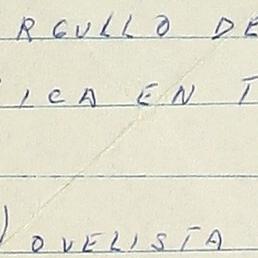 RGULLO DE
ICA EN T
NOVELISTA